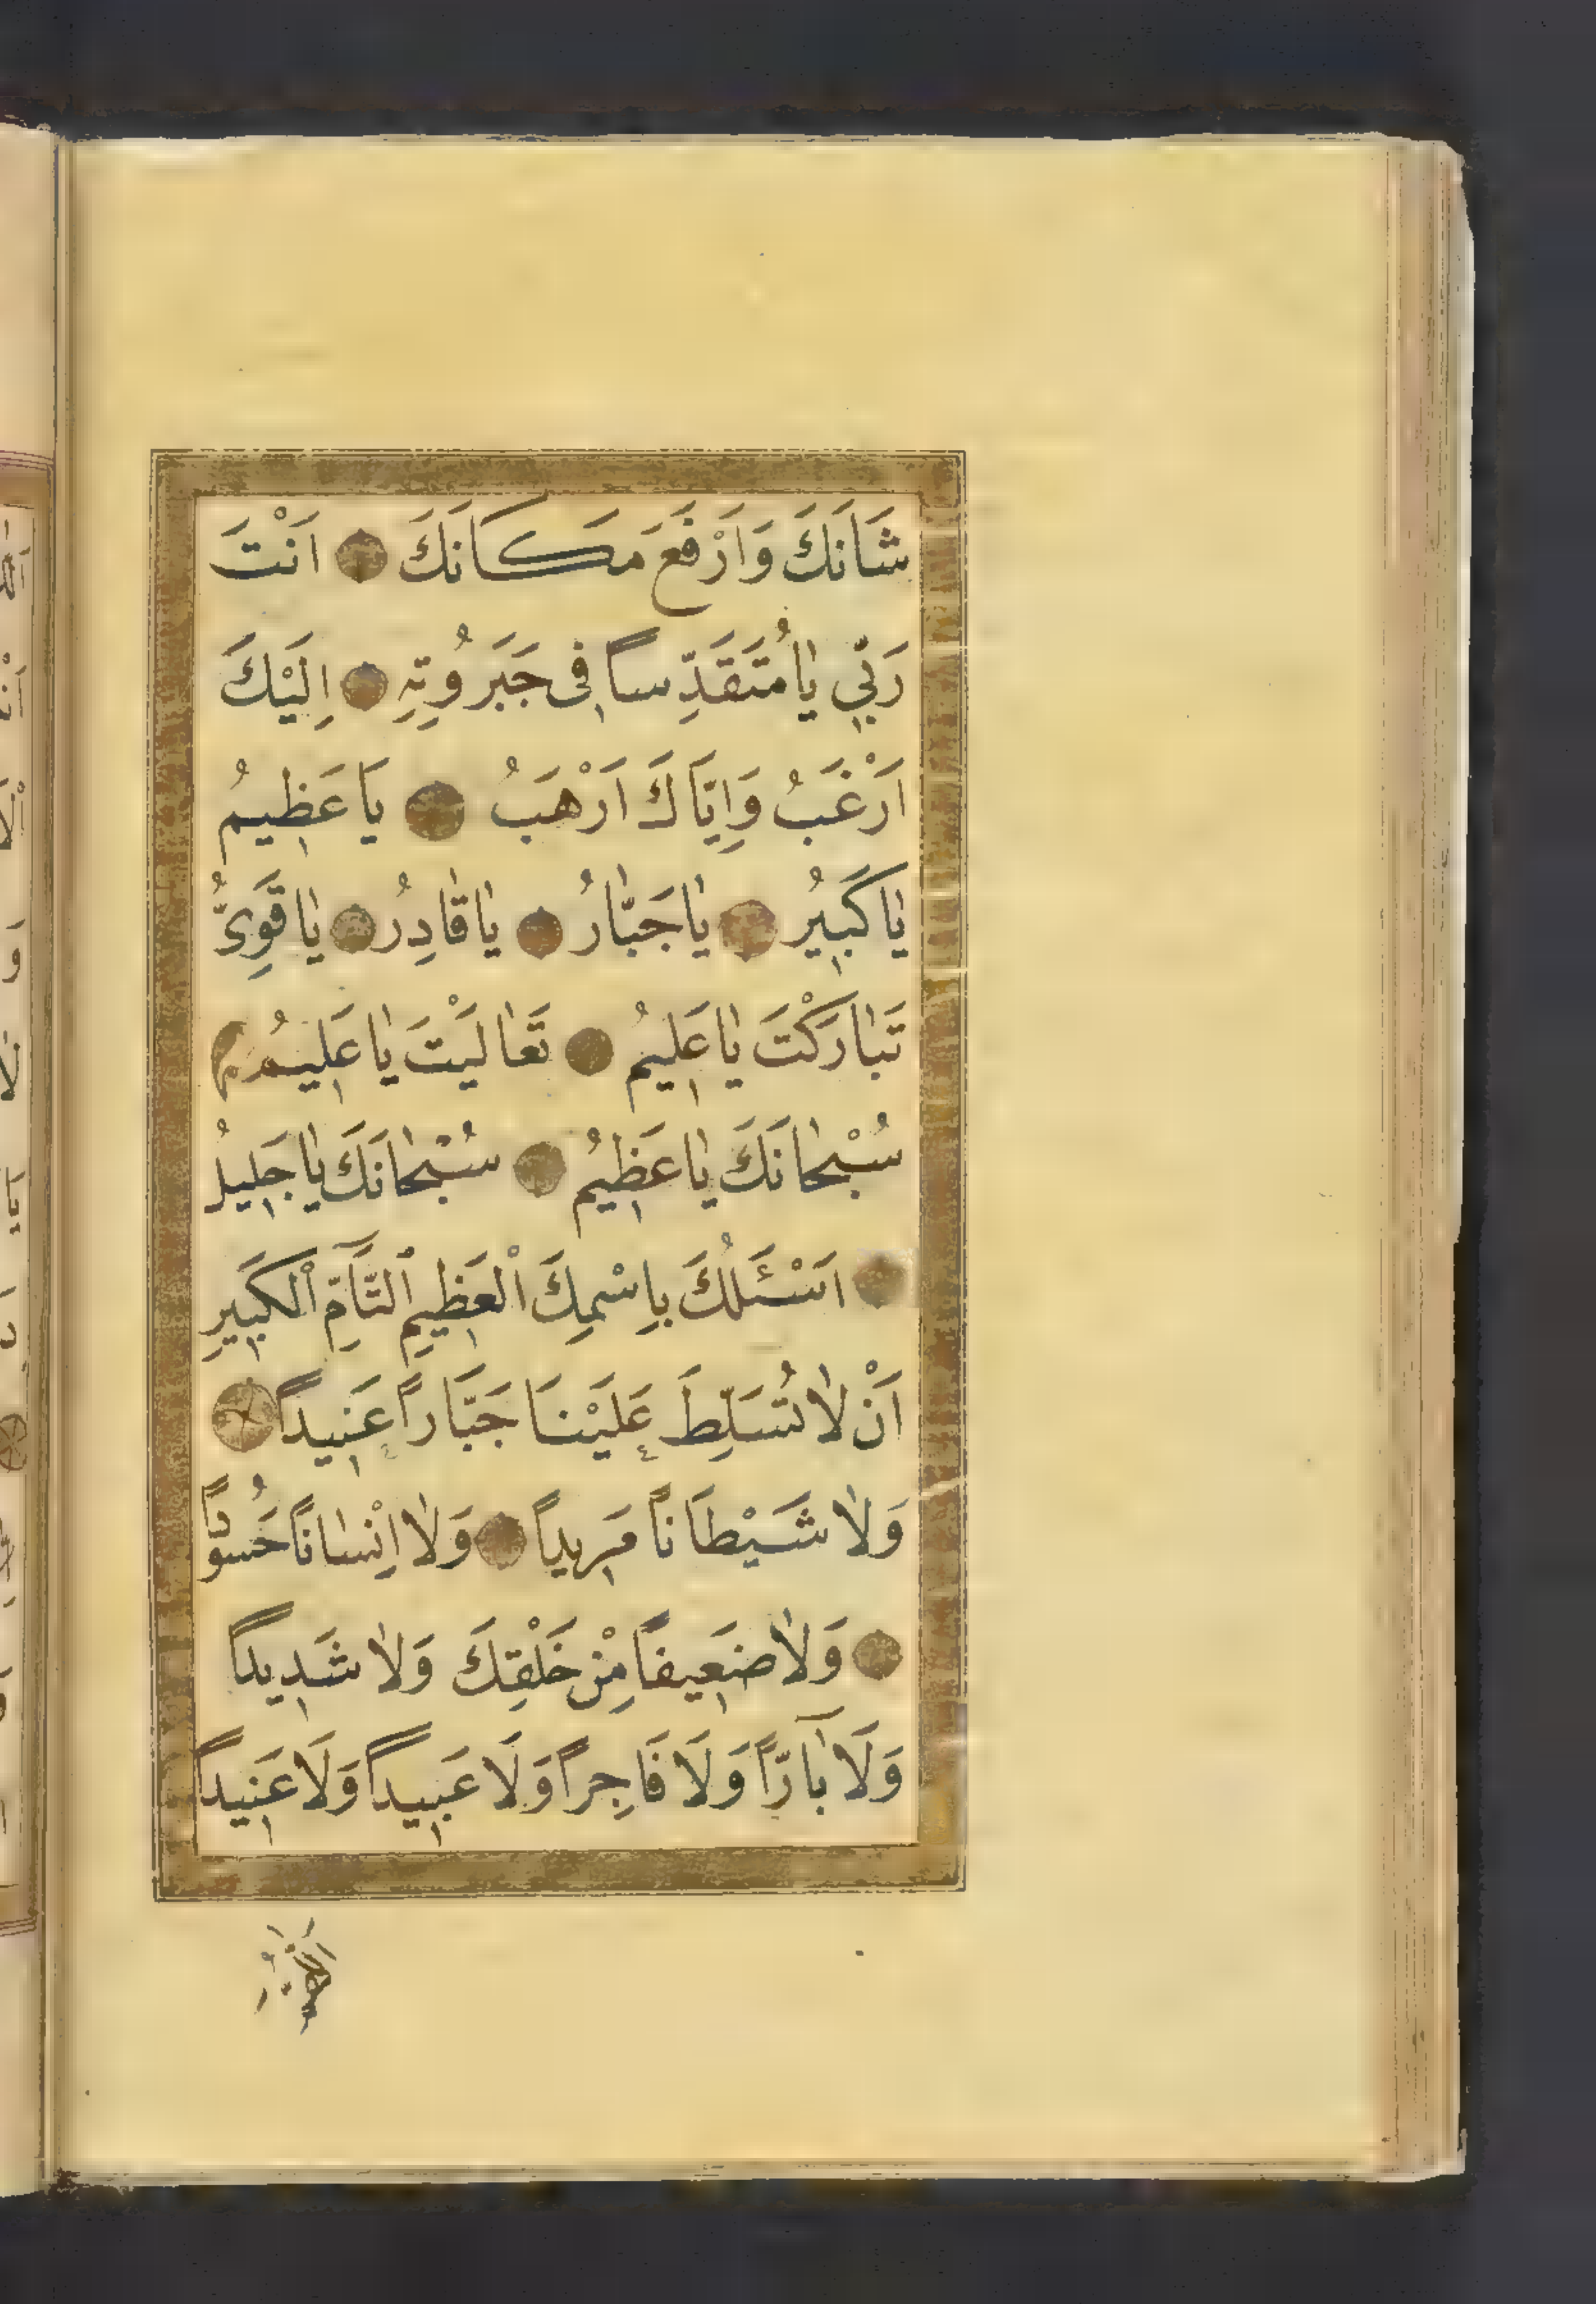 شَانَكَ وَاَرْفَعَ مَكَانَكَ ۝ اَنْتَ
رَبِّي يَا مُتَقَدِّساً فِى جَبَرُوُتِهِ ۝ اِلَيْكَ
اَرْغَبُ وَاِيَّاكَ اَرْهَبُ ۝ يَا عَظِيمُ
يَا كَبِيرُ ۝ يَا جَبَّارُ ۝ يَا قَادِرُ ۝ يَا قَوِىُّ
تَبَارَكْتَ يَا عَلِيمُ ۝ تَعَالَيْتَ يَا عَلِيمُ ۝
سُبْحَانَكَ يَا عَظِيمُ ۝ سُبْحَانَكَ يَا جَلِيلُ
۝ اَسْئَلُكَ بِاِسْمِكَ الْعَظِيمِ التَّآمِّ الْكَبِيرِ
اَنْ لَا تُسَلِّطَ عَلَيْنَا جَبَّاراً عَنِيداً ۝
وَلَا شَيْطَاناً مَرِيداً ۝ وَلَا اِنْسَاناً حَسُوداً
۝ وَلَا ضَعِيفاً مِنْ خَلْقِكَ وَلَا شَدِيداً
وَلَا بَآرّاً وَلَا فَاجِراً وَلَا عَبِيداً وَلَا عَنِيداً